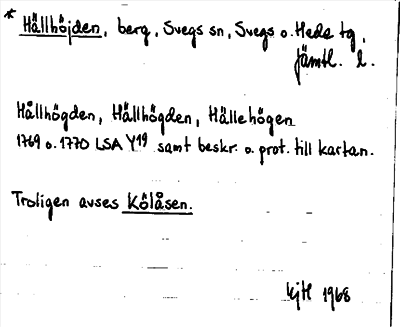 * Hållhöjden, berg, Svegs sn, Svegs o. Heds tg,
Jämtl. l.
Hållhögden, Hållhögden, Hållehögen
1769 o. 1770 LSA Y19 samt beskr. o. prot. till kartan.
Troligen avses Kölåsen.
1968